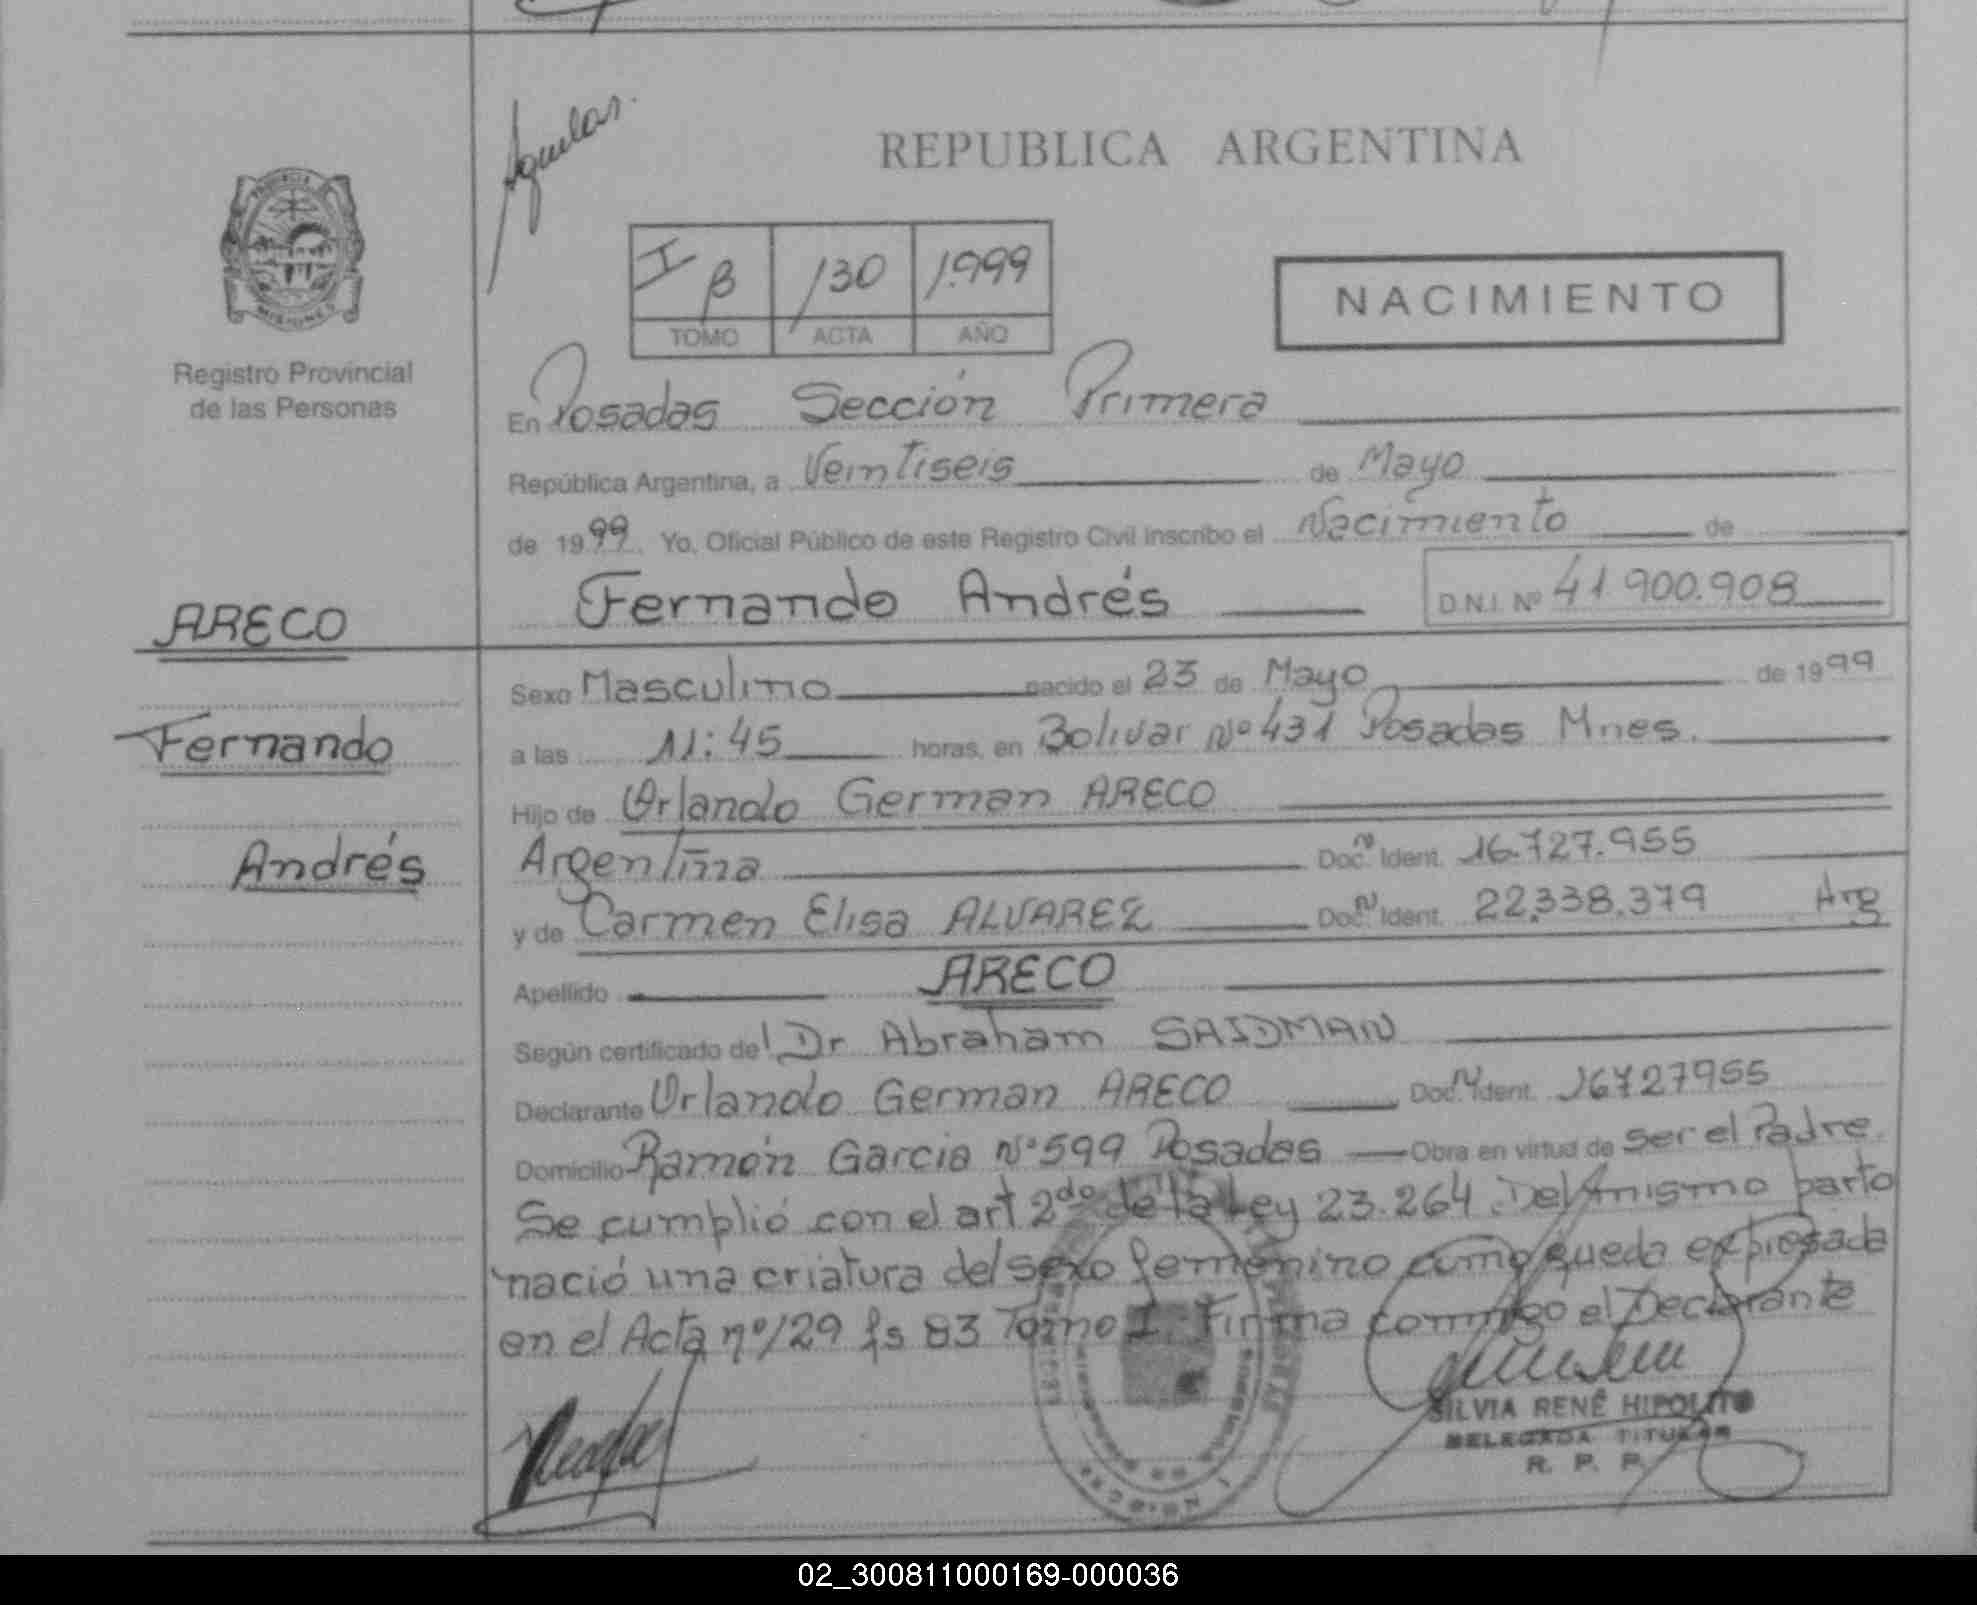 Aguilar.
REPUBLICA ARGENTINA
I B 130 1.999
TOMO ACTA AÑO
NACIMIENTO
PROVINCIA
MISIONES
Registro Provincial
de las Personas
En Posadas Sección Primera
República Argentina, a Veintiseis de Mayo
de 1999. Yo, Oficial Público de este Registro Civil inscribo el Nacimiento de
Fernando Andrés D.N.I. Nº 41.900.908
ARECO
Fernando
Andrés
Sexo Masculino nacido el 23 de Mayo de 1999
a las 11:45 horas, en Bolivar Nº 431 Posadas Mnes.
Hijo de Orlando German ARECO
Argentina Doc. N Ident. 16.727.955
y de Carmen Elisa ALVAREZ Doc. N Ident. 22.338.379 Arg
Apellido ARECO
Según certificado del Dr Abraham SAIDMAN
Declarante Orlando German ARECO Doc. N Ident. 16727955
Domicilio Ramón Garcia Nº 599 Posadas Obra en virtud de ser el Padre.
Se cumplió con el art 2do de la Ley 23.264. Del mismo parto
nació una criatura del sexo femenino como queda expresada
en el Acta nº 129 fs 83 Tomo I. Firma conmigo el Declarante
SILVIA RENÉ HIPOLITO
DELEGADA TITULAR
R. P. P.
02_300811000169-000036